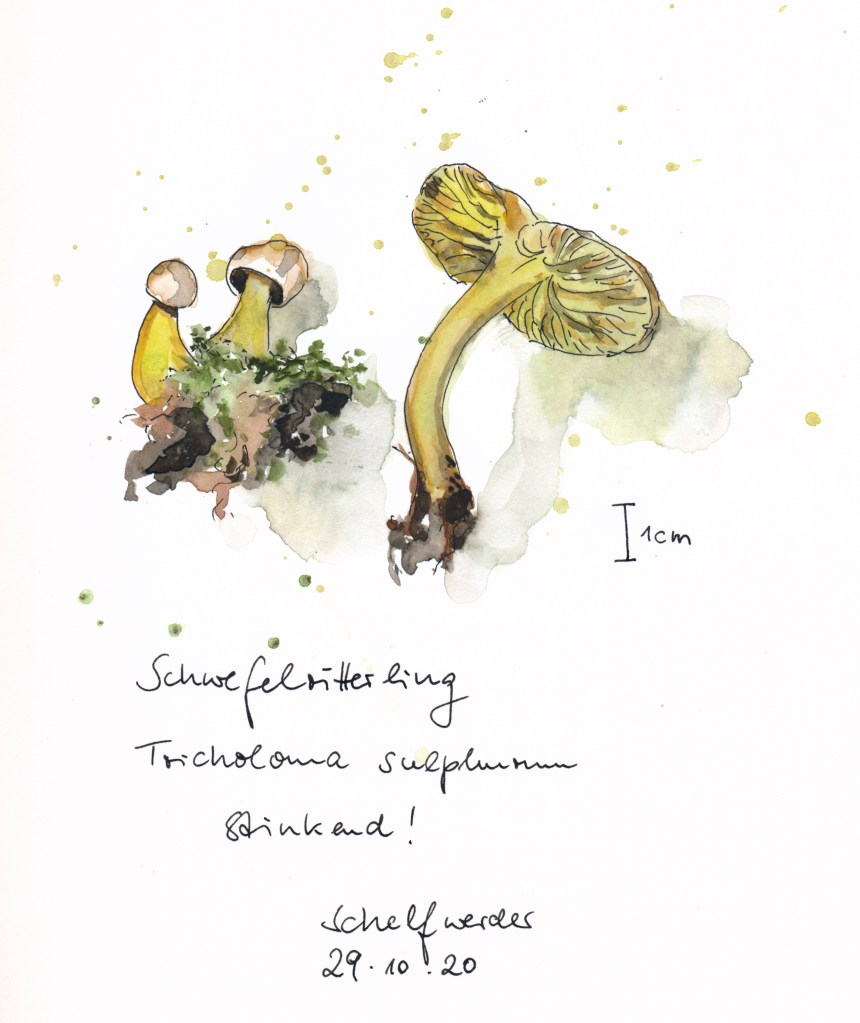 1cm
Schwefelritterling
Tricholoma sulphureum
stinkend!
Schelfwerder
29.10.20